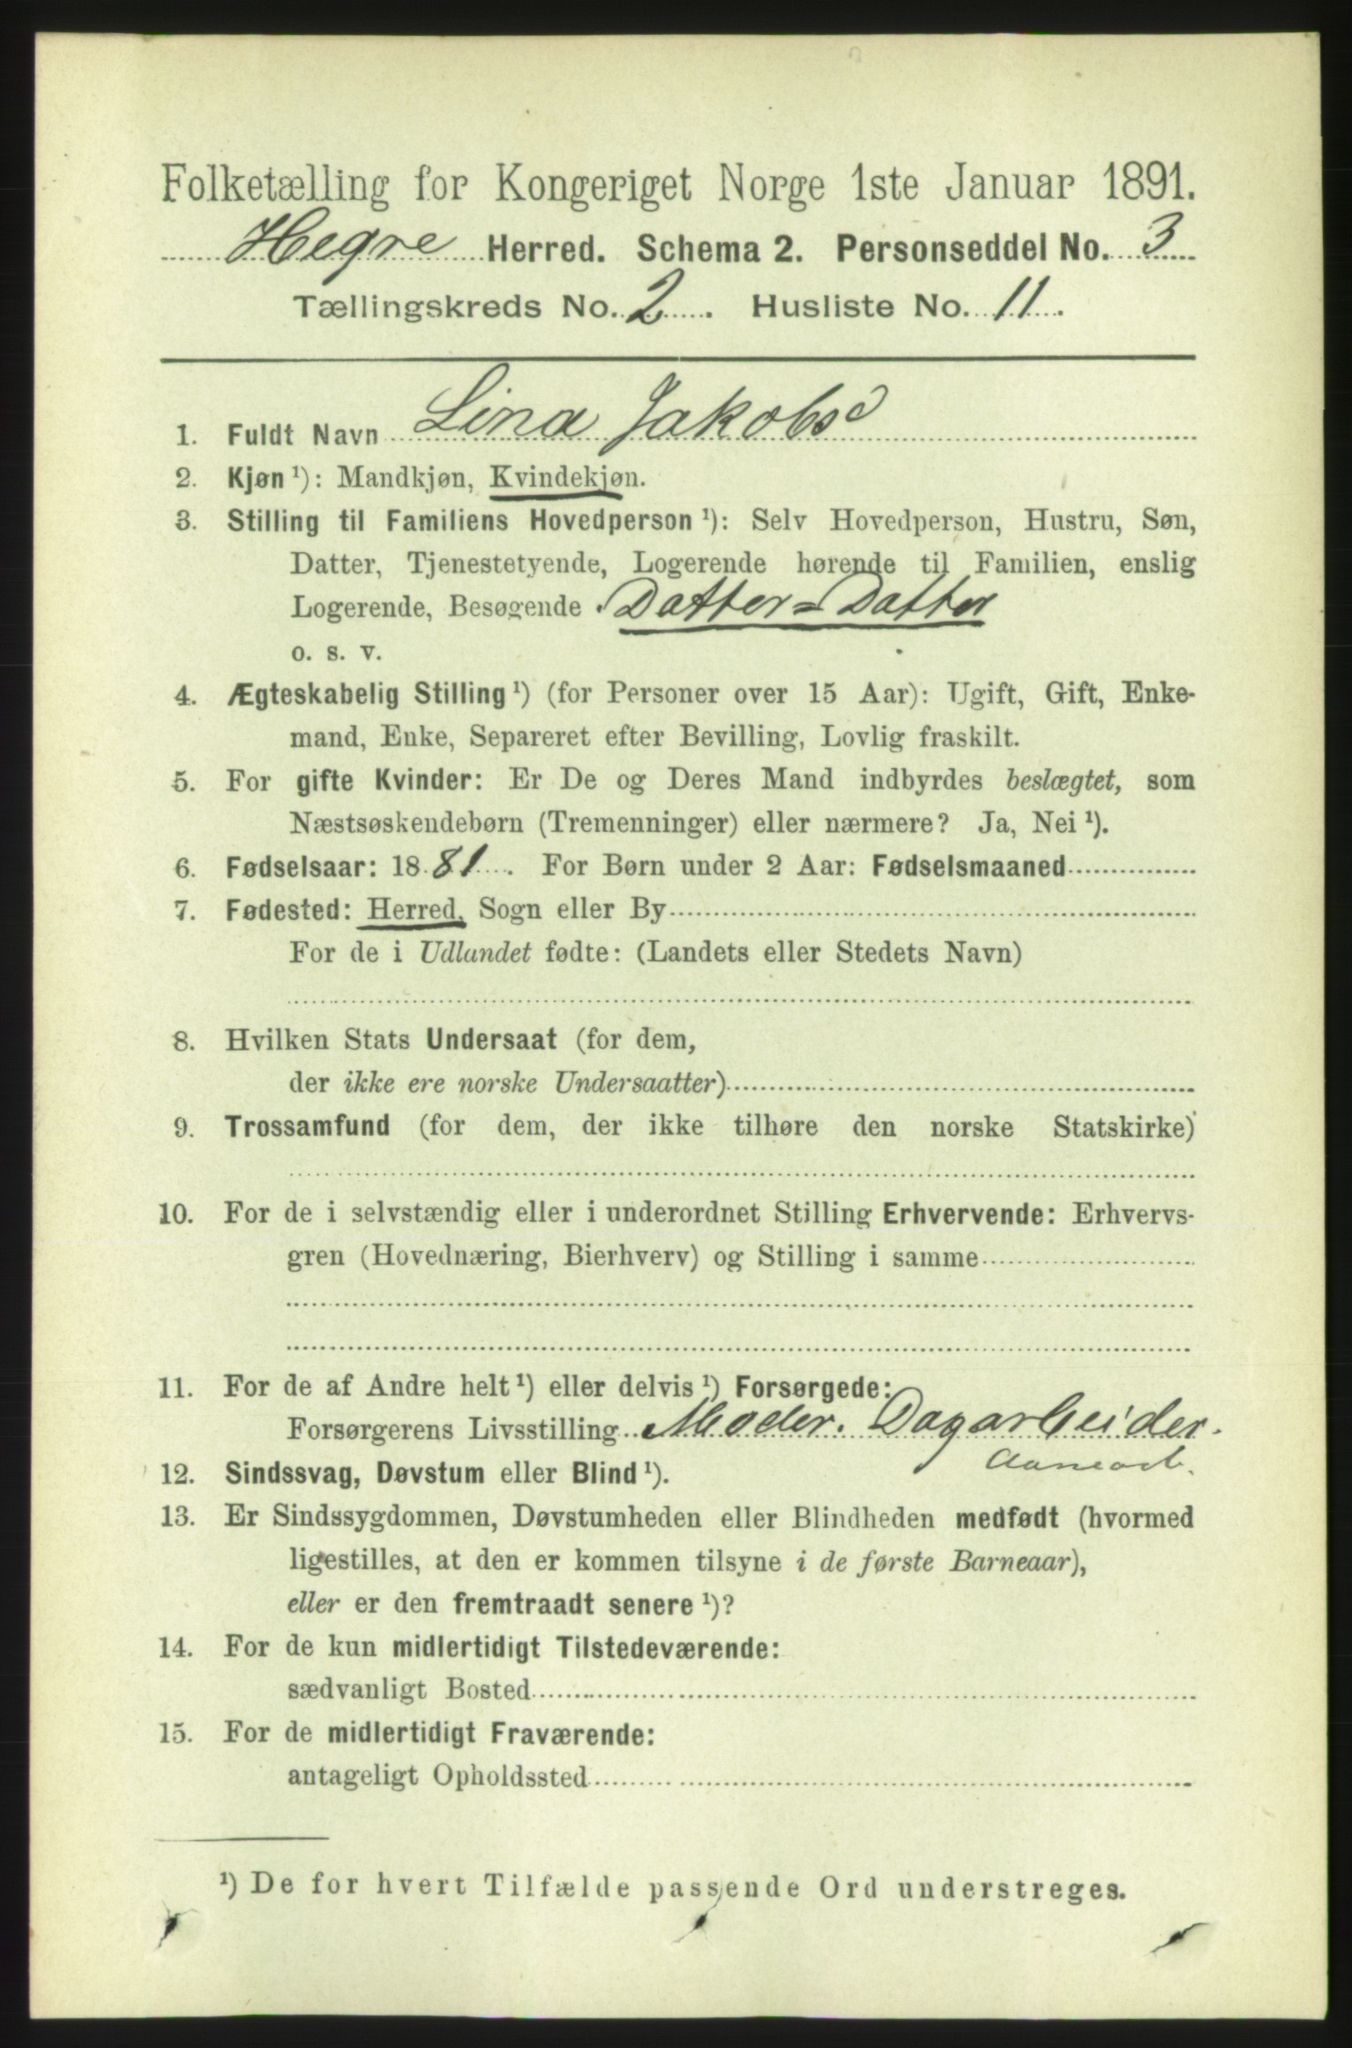 Folketælling for Kongeriget Norge 1ste Januar 1891.
Hegre Herred. Schema 2. Personseddel No. 3
Tællingskreds No. 2. Husliste No. 11.
1. Fuldt Navn Lina Jakobsd
2. Kjøn ¹): Mandkjøn, Kvindekjøn.
3. Stilling til Familiens Hovedperson ¹): Selv Hovedperson, Hustru, Søn,
Datter, Tjenestetyende, Logerende hørende til Familien, enslig
Logerende, Besøgende Datter=Datter
o. s. v.
4. Ægteskabelig Stilling ¹) (for Personer over 15 Aar): Ugift, Gift, Enke-
mand, Enke, Separeret efter Bevilling, Lovlig fraskilt.
5. For gifte Kvinder: Er De og Deres Mand indbyrdes beslægtet, som
Næstsøskendebørn (Tremenninger) eller nærmere? Ja, Nei ¹).
6. Fødselsaar: 1881. For Børn under 2 Aar: Fødselsmaaned
7. Fødested: Herred, Sogn eller By
For de i Udlandet fødte: (Landets eller Stedets Navn)
8. Hvilken Stats Undersaat (for dem,
der ikke ere norske Undersaatter)
9. Trossamfund (for dem, der ikke tilhøre den norske Statskirke)
10. For de i selvstændig eller i underordnet Stilling Erhvervende: Erhvervs-
gren (Hovednæring, Bierhverv) og Stilling i samme
11. For de af Andre helt ¹) eller delvis ¹) Forsørgede:
Forsørgerens Livsstilling Moder. Dagarbeider.
12. Sindssvag, Døvstum eller Blind ¹).
13. Er Sindssygdommen, Døvstumheden eller Blindheden medfødt (hvormed
ligestilles, at den er kommen tilsyne i de første Barneaar),
eller er den fremtraadt senere ¹)?
14. For de kun midlertidigt Tilstedeværende:
sædvanligt Bosted
15. For de midlertidigt Fraværende:
antageligt Opholdssted
¹) De for hvert Tilfælde passende Ord understreges.